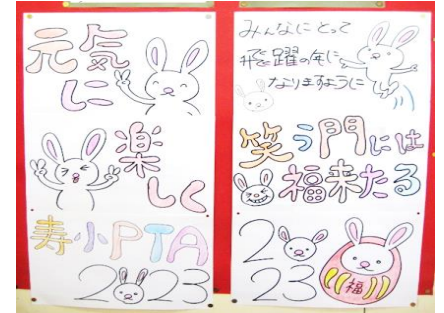 元気
に
楽
しく
寿小PTA
2023
みんなにとって
飛躍の年に
なりますように
笑う門には
福来たる
20
23
福